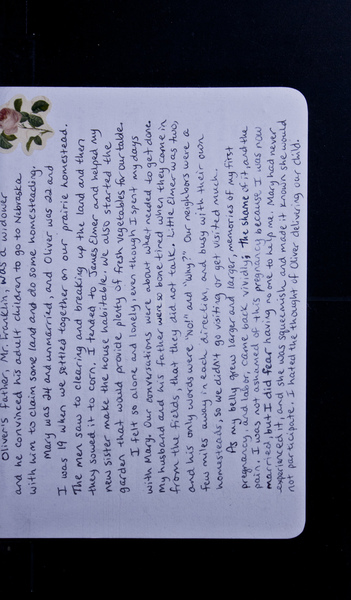 Oliver's father, Mr. Franklin, was a widower
and he convinced his adult children to go to Nebraska
with him to claim some land and do some homesteading.
Mary was 24 and unmarried, and Oliver was 22 and
I was 19 when we settled together on our prairie homestead.
The men saw to clearing and breaking up the land and then
they sowed it to corn. I tended to James Elmer and helped my
new sister make the house habitable. We also started the
garden that would provide plenty of fresh vegetables for our table.
I felt so alone and lonely, even though I spent my days
with Mary. Our conversations were about what needed to get done.
My husband and his father were so bone tired when they came in
from the fields, that they did not talk. Little Elmer was two,
and his only words were "No!" and "Why?" Our neighbors were a
few miles away in each direction and busy with their own
homesteads, so we didn't go visiting or get visited much.
As my belly grew larger and larger, memories of my first
pregnancy and labor came back vividly; the shame of it, and the
pain. I was not ashamed of this pregnancy because I was now
married but I did fear having no one to help me. Mary had never
experienced it, and she was squeamish and made it known she would
not participate. I hated the thought of Oliver delivering our child.